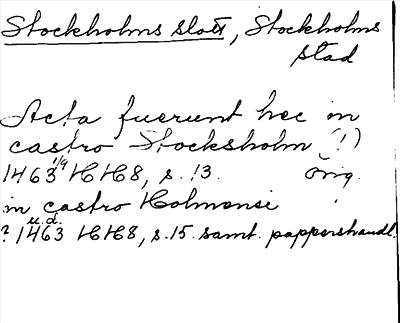 Stockholms slott, Stockholms
stad
Acta fuerunt hec in
castro Stocksholm (!)
1463 1/9 HH8, s. 13. Orig.
in castro Holmensi
u.d.
? 1463 HH8, s.15. samt. pappershandl.